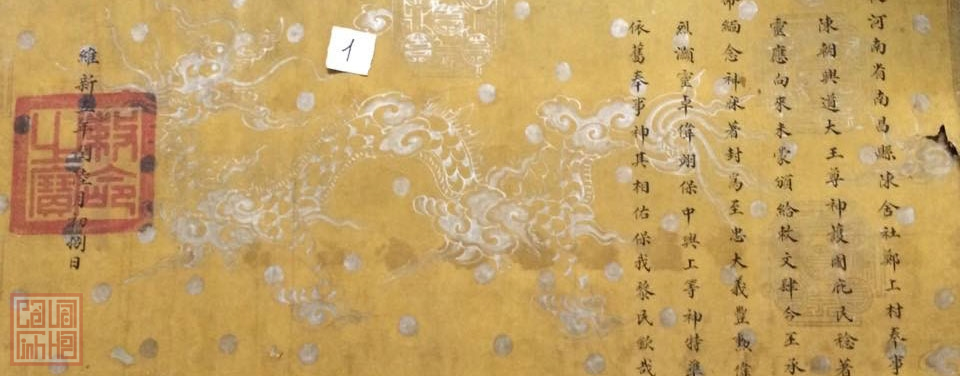 河南省南昌縣陳舍社鄭上村奉事
陳朝興道大王尊神護國庇民稔著
靈應向來未蒙頒給敕文肆今丕承
命緬念神庥著封為至忠大義豐勳偉
烈灝靈卓偉翊保中興上等神特準
依舊奉事神其相佑保我黎民欽哉
維新五年閏陸月初捌日
敕命之寶
1